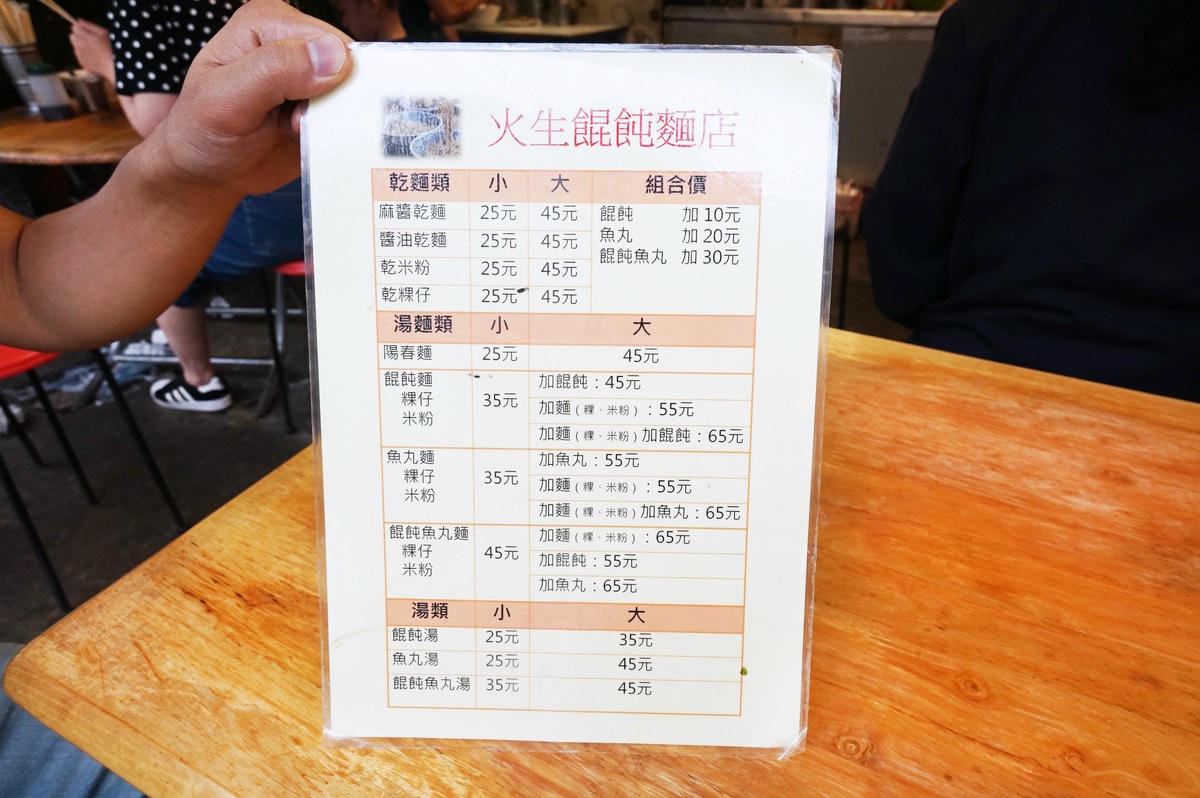 火生餛飩麵店
乾麵類 小 大 組合價
麻醬乾麵 25元 45元 餛飩 加10元
醬油乾麵 25元 45元 魚丸 加20元
乾米粉 25元 45元 餛飩魚丸 加30元
乾粿仔 25元 45元
湯麵類 小 大
陽春麵 25元 45元
餛飩麵 35元 加餛飩：45元
粿仔 加麵（粿、米粉）：55元
米粉 加麵（粿、米粉）加餛飩：65元
魚丸麵 35元 加魚丸：55元
粿仔 加麵（粿、米粉）：55元
米粉 加麵（粿、米粉）加魚丸：65元
餛飩魚丸麵 45元 加麵（粿、米粉）：65元
粿仔 加餛飩：55元
米粉 加魚丸：65元
湯類 小 大
餛飩湯 25元 35元
魚丸湯 25元 45元
餛飩魚丸湯 35元 45元